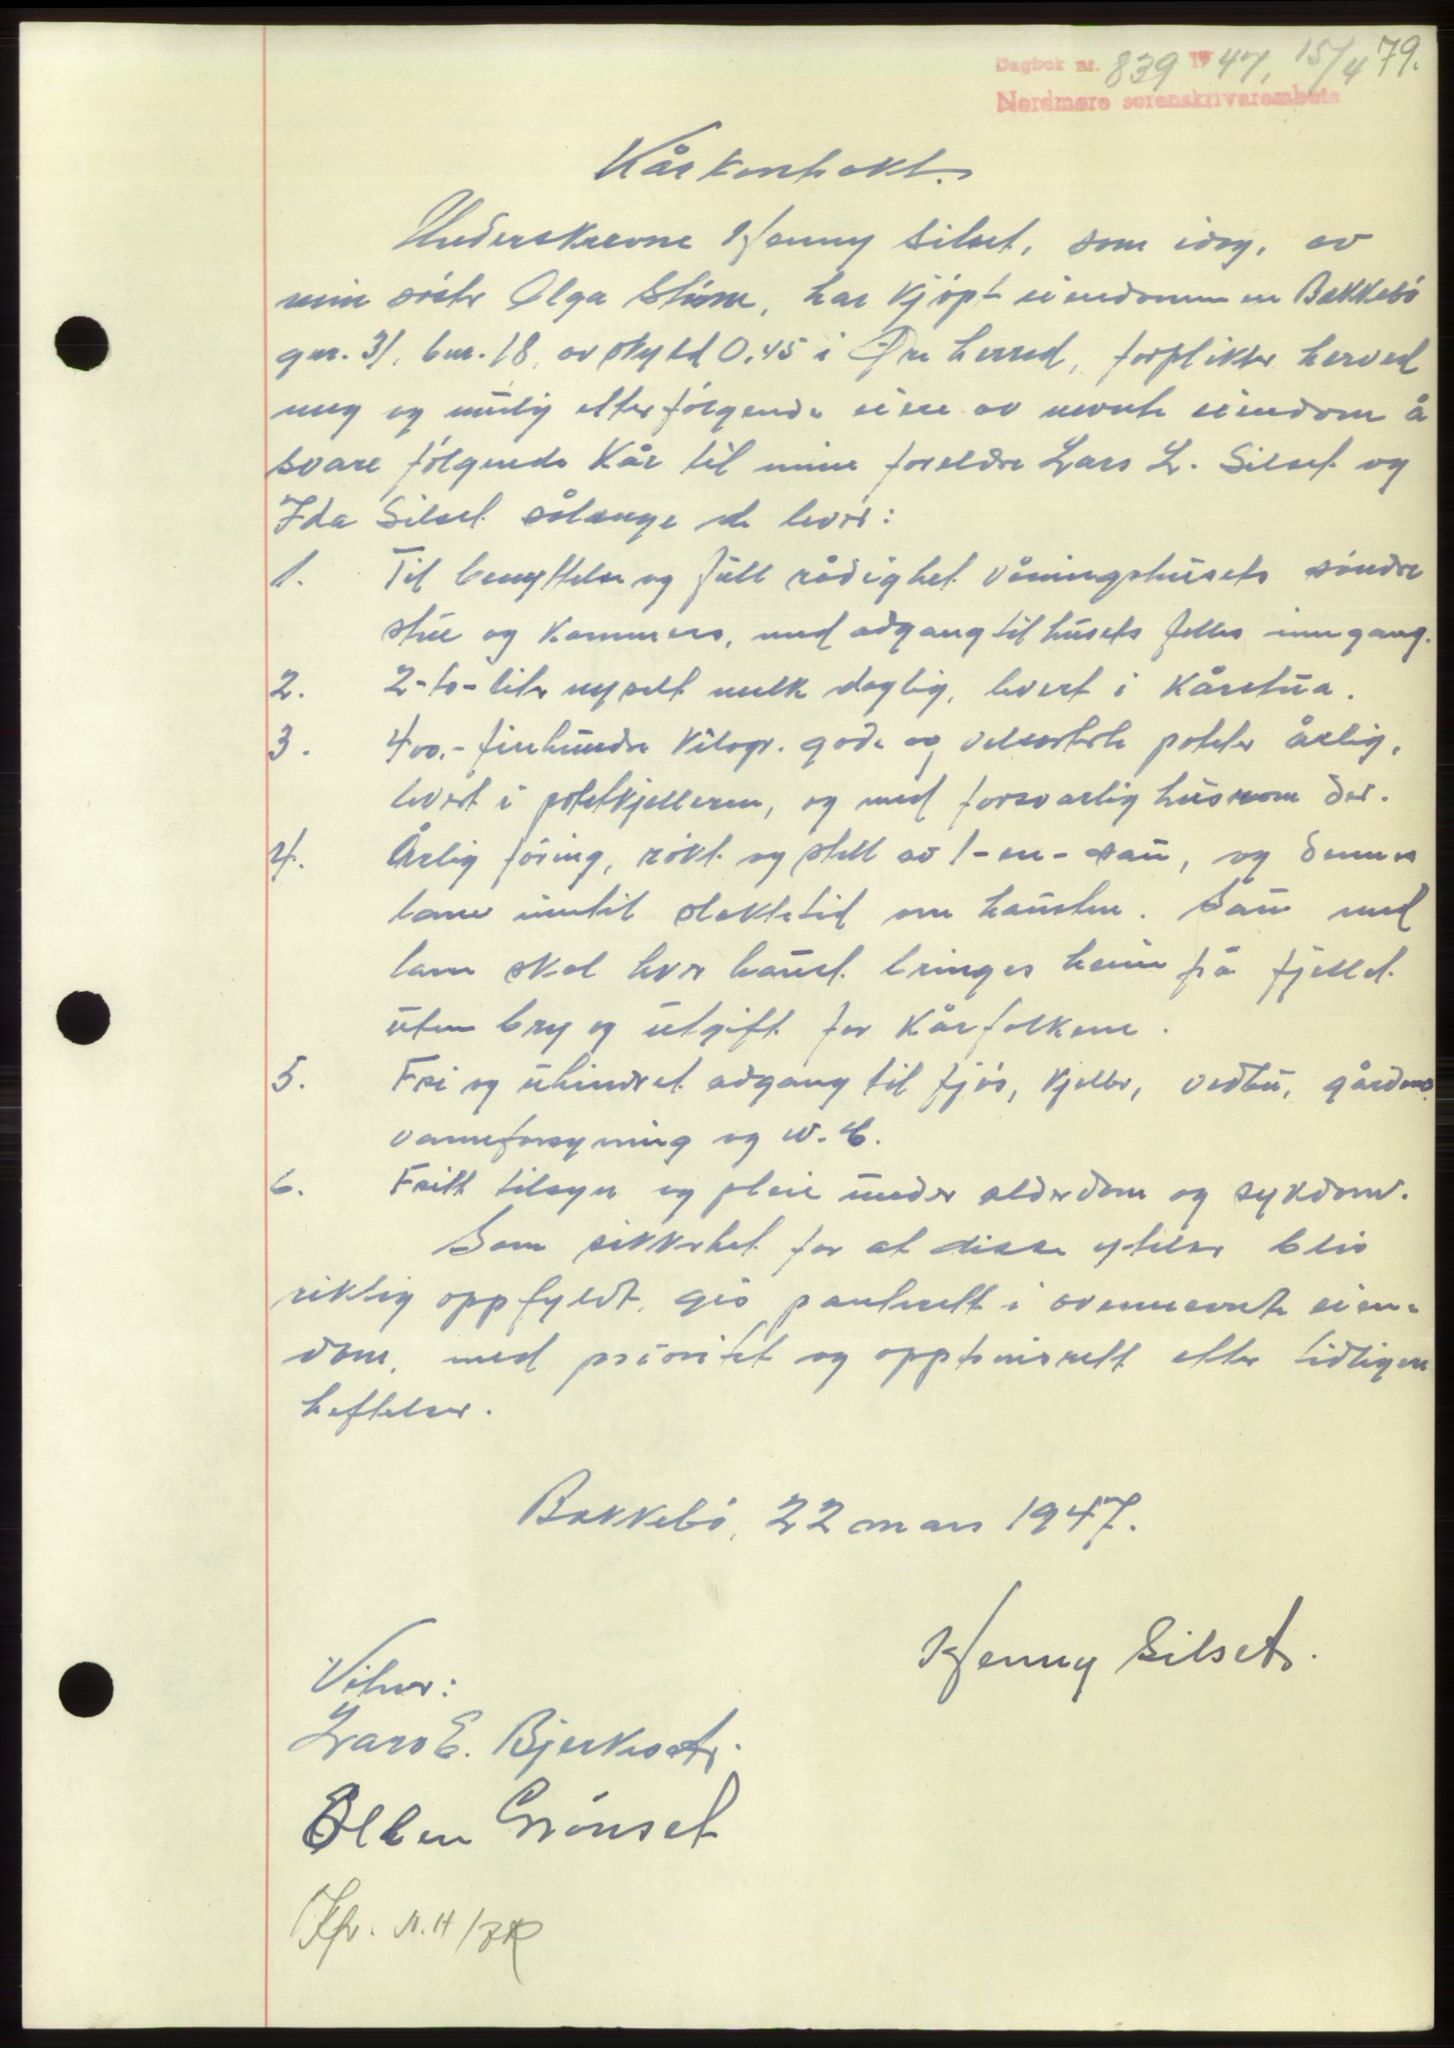 Dagbok nr. 839 1947, 15/4 79.
Nordmøre sorenskriverembete
Kårkontrakt.
Underskrevne Henny Silset, som idag, av
min söster Olga Stúrn, har kjöpt eiendommen Bakkebö
gnr. 31, bnr. 18, av skyld 0,45 i Öre herred, forplikter herved
meg og mulig etterfölgende eiere av nevnte eiendom å
svare fölgende kår til mine foreldre Lars L. Silset og
Ida Silset sålenge de lever:
1. Til benyttelse og full rådighet våningshusets söndre
stue og kammers, med adgang til husets felles inngang.
2. 2-to-liter nysilt melk daglig, levert i kårstua.
3. 400,- firehundre kilogr. gode og velsorterte poteter årlig,
levert i potetkjelleren, og med forsvarlig husrom der.
4. Årlig foring, rökt og stell av 1-en-sau, og dennes
lam inntil slaktetid om hausten. Sau med
lam skal hver haust bringes heim frå fjellet
uten bry og utgift for kårfolkene.
5. Fri og uhindret adgang til fjös, kjeller, vedbu, gårdens
vannforsyning og W.C.
6. Fritt tilsyn og pleie under alderdom og sykdom.
Som sikkerhet for at disse ytelser blir
riktig oppfyldt, gis panterett i ovennevnte eien-
dom, med prioritet og opptrinsrett etter tidligere
heftelser.
Bakkebö, 22 mars 1947.
Henny Silset.
Vitner:
Lars E. Bjerkeset.
Elben Grönset
Kfr. M.H/BR